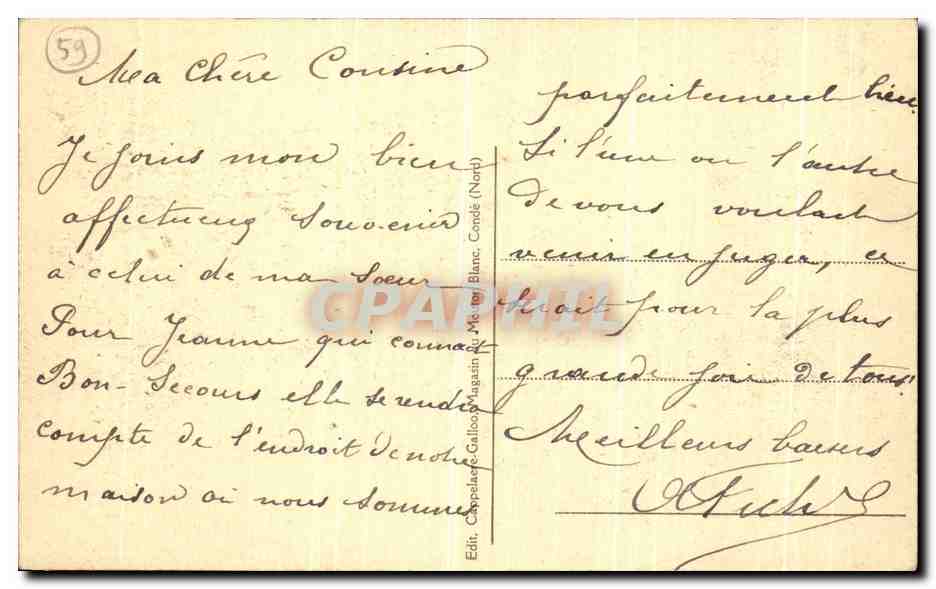 59
Ma chère Cousine
Je joins mon bien
affectueux souvenir
à celui de ma soeur
Pour Jeanne qui connait
Bon-Secours elle se rendra
compte de l'endroit de notre
maison où nous sommes
parfaitement bien.
Si l'une ou l'autre
de vous voulait
venir en juger, ce
serait pour la plus
grande joie de tous!
Meilleurs baisers
Edit. Cappelaere-Galloo, Magasin du Mouton Blanc, Condé (Nord)
CPAPHIL